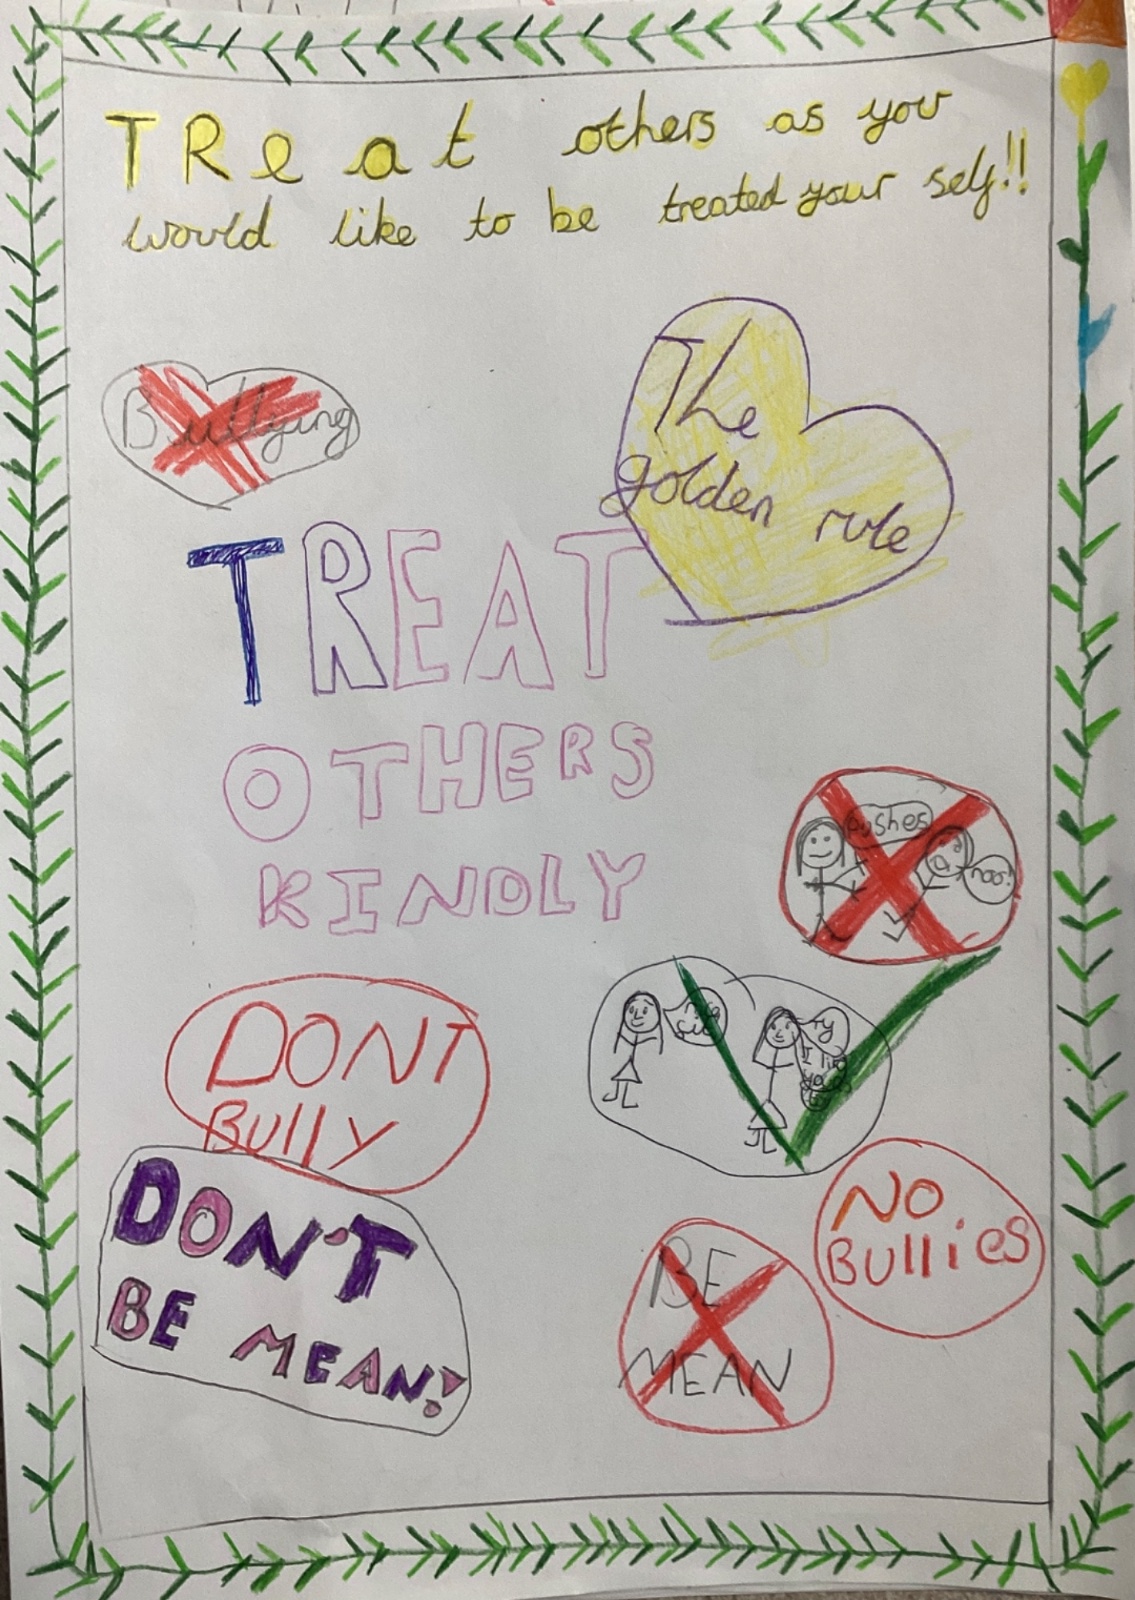 TReat others as you
would like to be treated your self!!
Bullying
The
golden rule
TREAT
OTHERS
KINDLY
Pushes
noo!
DONT
Bully
DON'T
BE MEAN!
NO
BULLIES
BE
MEAN